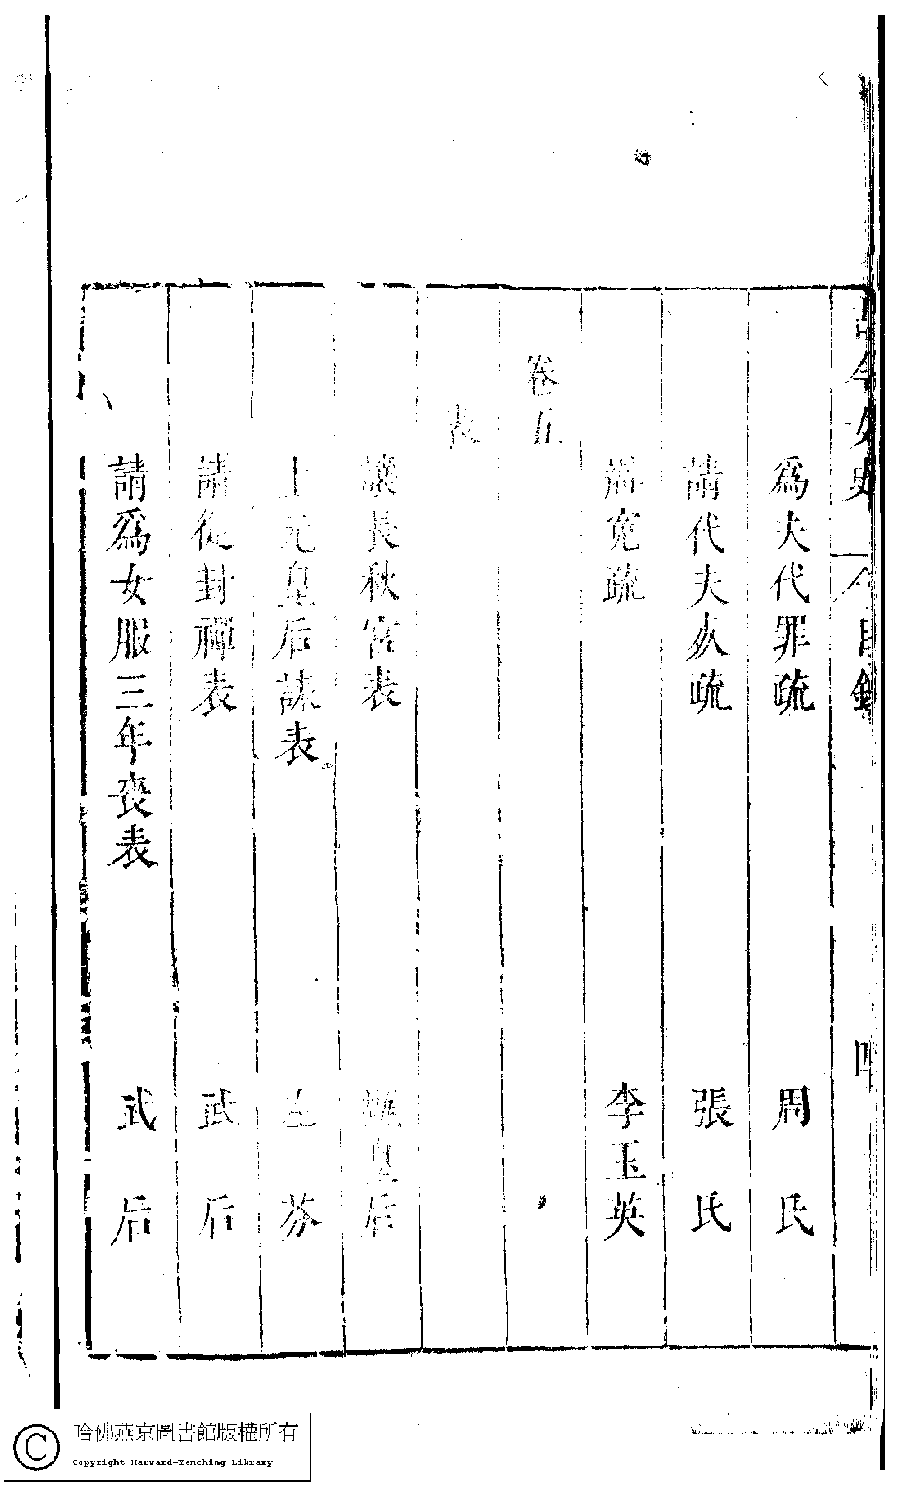 古今女史 目錄 四
為夫代罪疏 周氏
請代夫死疏 張氏
辯冤疏 李玉英
卷五
表
讓長秋宮表 皇后
上元皇后誄表 左芬
請從封禪表 武后
請爲女服三年喪表 武后
哈佛燕京圖書館版權所有
Copyright Harvard-Yenching Library